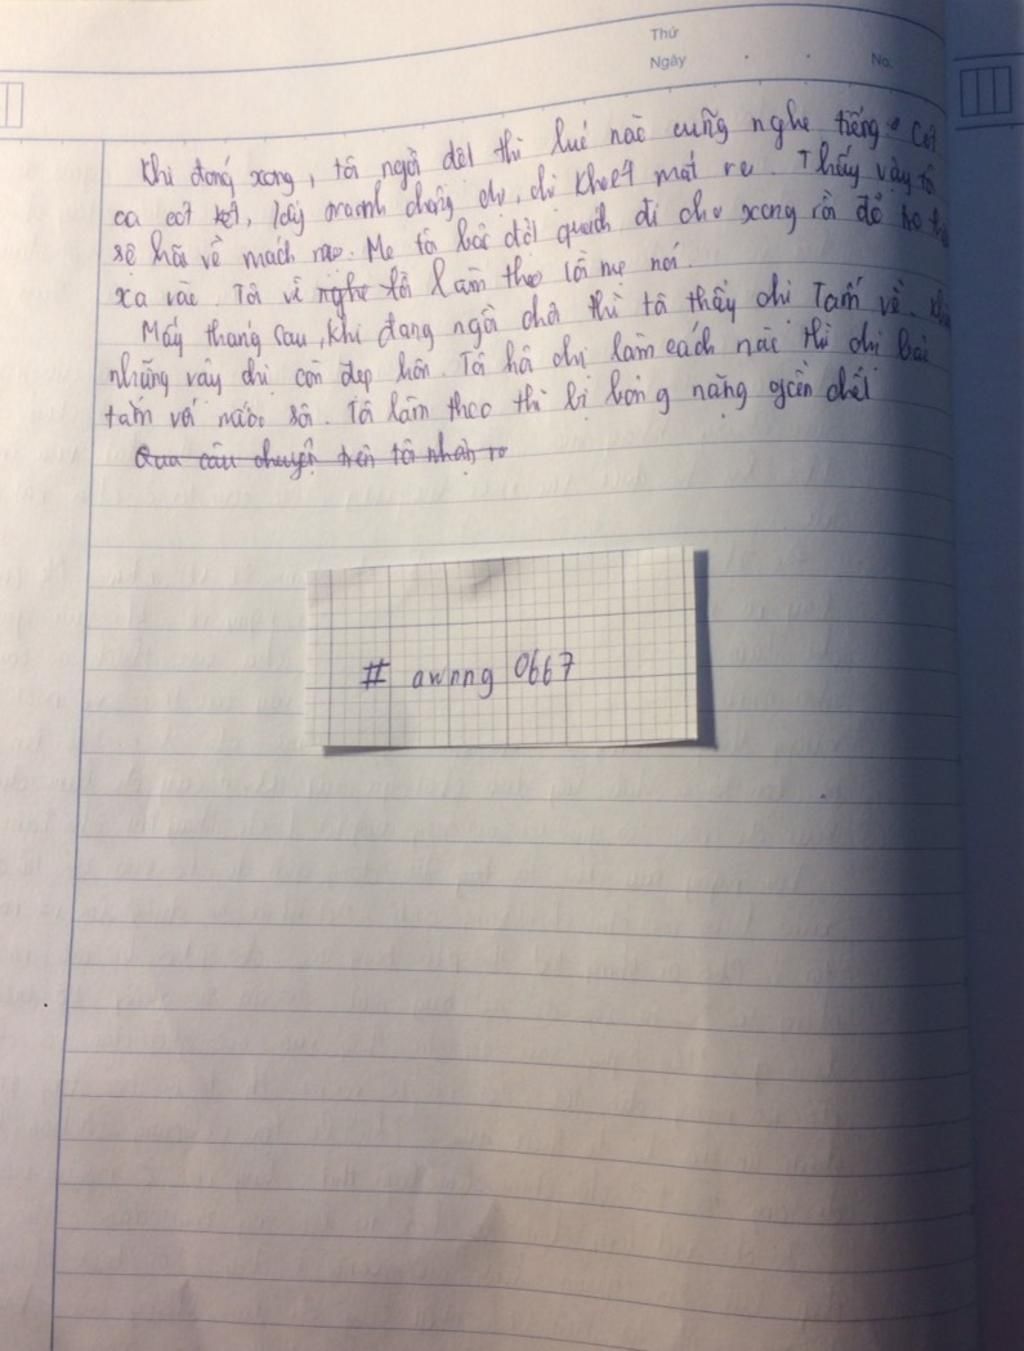 Thứ
Ngày
No.
Khi đóng xong, tôi ngồi dệt thì lúc nào cũng nghe tiếng cót
ca cót két, lấy tranh chồng chị, chị khoét mắt ra. Thấy vậy tô
sợ hãi về mách mẹ. Mẹ tôi bảo đốt quách đi cho xong rồi đổ tro
xa vào. Tôi về nghe lời làm theo lời mẹ nói.
Mấy tháng sau, khi đang ngồi chơi thì tôi thấy chị Tấm về.
những vậy chị còn đẹp hơn. Tôi hỏi chị làm cách nào thì chị bảo
tắm với nước sôi. Tôi làm theo thì bị bỏng nặng gần chết
Qua câu chuyện trên tôi nhận ra
# awnng 0667